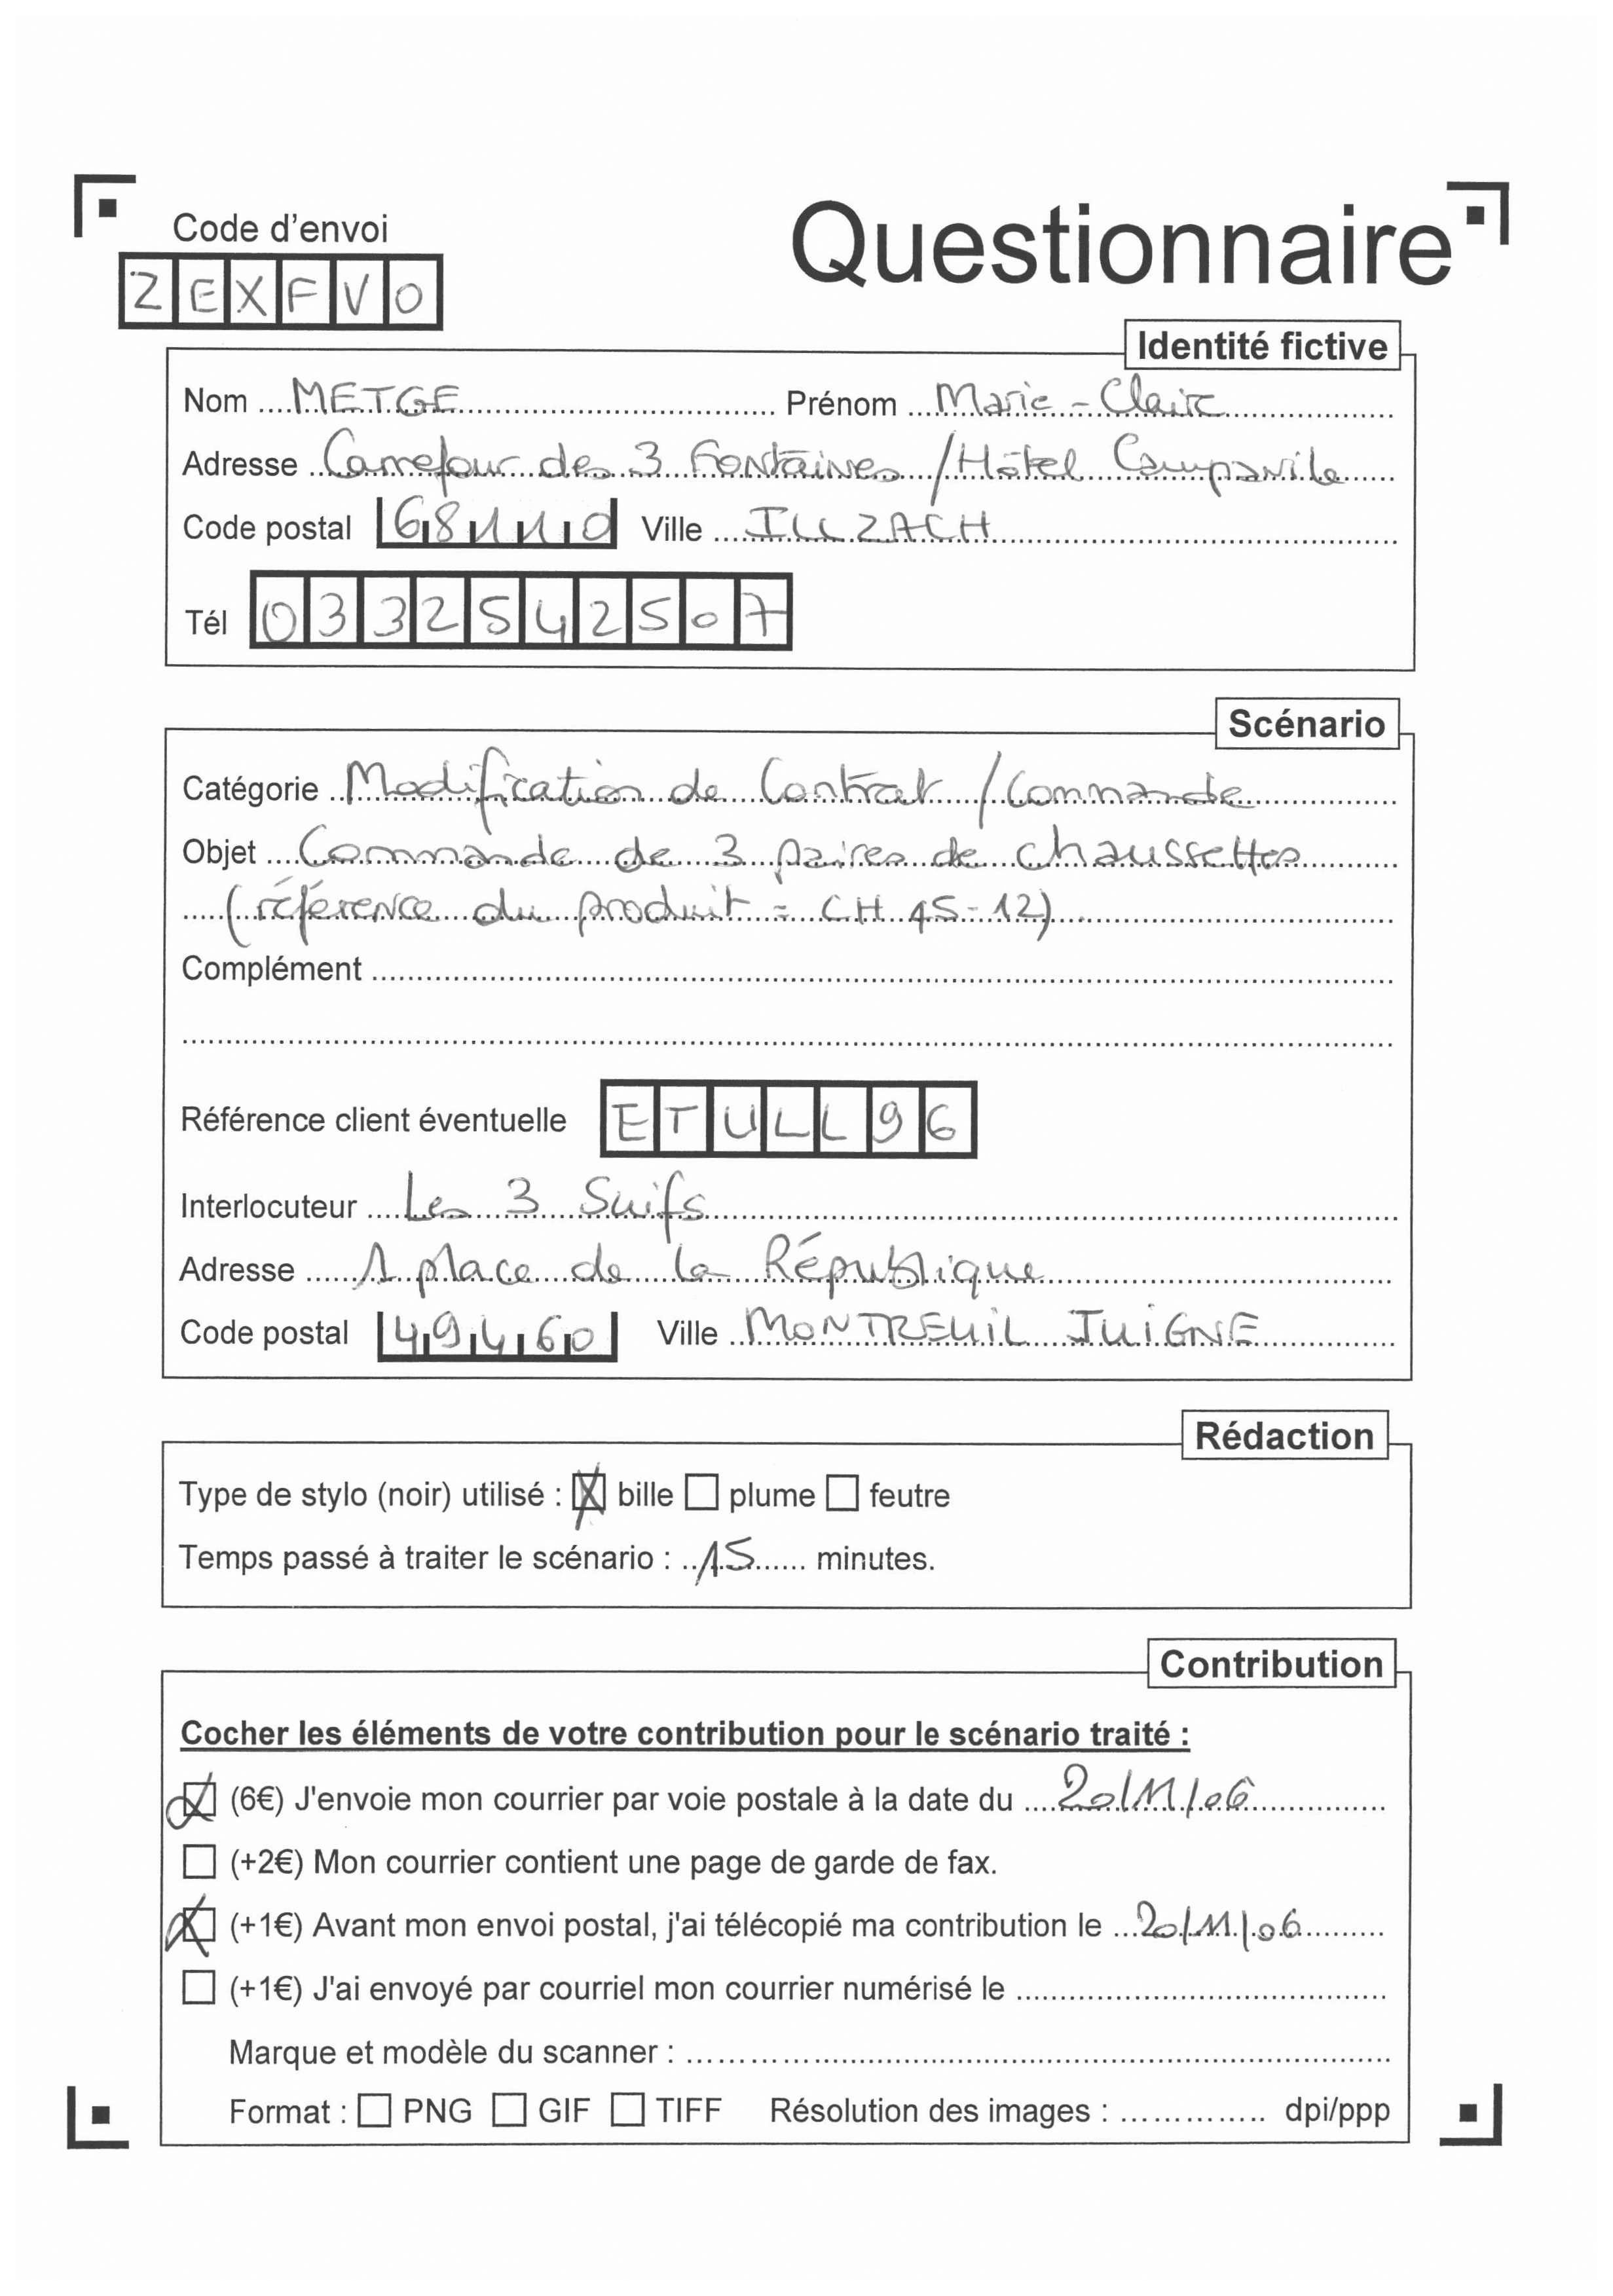 Questionnaire
Code d'envoi
ZEXFVO
Identité fictive
Nom METGE Prénom Marie-Claire
Adresse Carrefour des 3 Fontaines / Hôtel Campanile
Code postal 68110 Ville ILLZACH
Tél 0332542507
Scénario
Catégorie Modification de Contrat / Commande
Objet Commande de 3 paires de chaussettes
(référence du produit = CH 45-12)
Complément
Référence client éventuelle ETULL96
Interlocuteur Les 3 Suifs
Adresse 1 place de la République
Code postal 49460 Ville MONTREUIL JUIGNE
Rédaction
Type de stylo (noir) utilisé : ☒ bille ☐ plume ☐ feutre
Temps passé à traiter le scénario : 15 minutes.
Contribution
Cocher les éléments de votre contribution pour le scénario traité :
☒ (6€) J'envoie mon courrier par voie postale à la date du 20/11/06
☐ (+2€) Mon courrier contient une page de garde de fax.
☒ (+1€) Avant mon envoi postal, j'ai télécopié ma contribution le 20/11/06
☐ (+1€) J'ai envoyé par courriel mon courrier numérisé le
Marque et modèle du scanner :
Format : ☐ PNG ☐ GIF ☐ TIFF Résolution des images : dpi/ppp